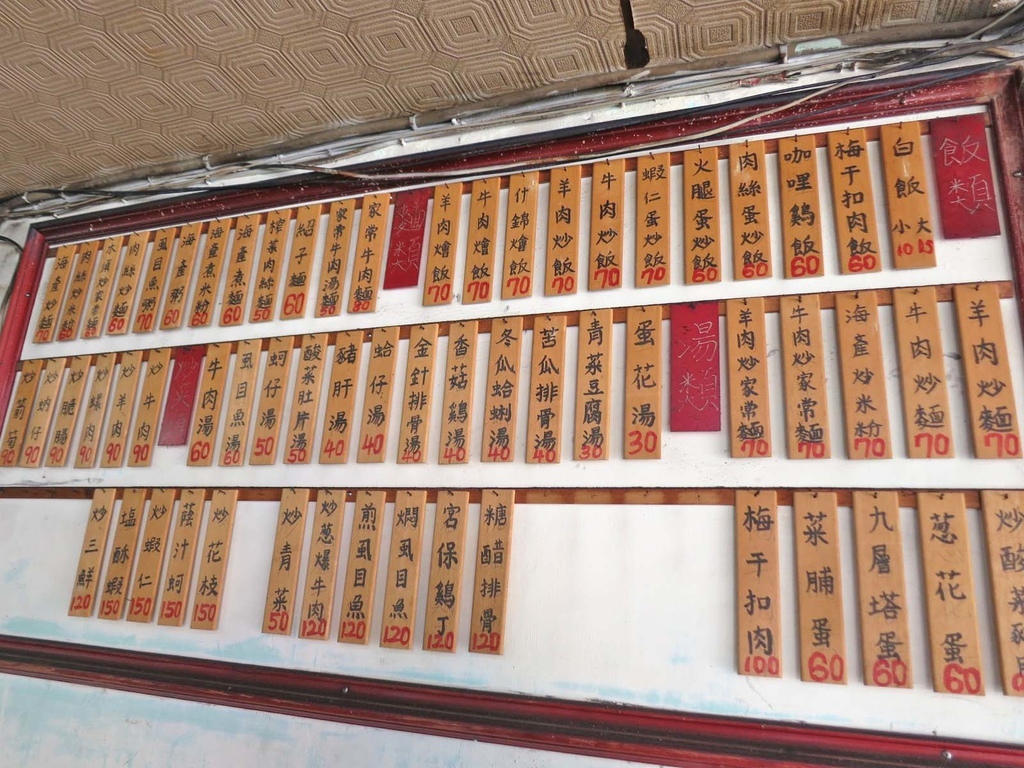 飯類
白飯 小10 大15
梅干扣肉飯 60
咖哩鷄飯 60
肉絲蛋炒飯 60
火腿蛋炒飯 60
蝦仁蛋炒飯 70
牛肉炒飯 70
羊肉炒飯 70
什錦燴飯 70
牛肉燴飯 70
羊肉燴飯 70
麵類
家常牛肉麵 80
家常牛肉湯麵
紹子麵 60
榨菜肉絲麵 50
海產煮麵 60
海產煮米粉 60
海產粥 60
虱目魚粥 70
肉絲炒麵 60
肉絲炒米粉 60
海產炒麵 70
羊肉炒麵 70
牛肉炒麵 70
海產炒米粉 70
牛肉炒家常麵 70
羊肉炒家常麵 70
湯類
蛋花湯 30
青菜豆腐湯 30
苦瓜排骨湯 40
冬瓜蛤蜊湯 40
香菇鷄湯 40
金針排骨湯 40
蛤仔湯 40
豬肝湯 40
酸菜肚片湯 50
蚵仔湯 50
虱目魚湯 60
牛肉湯 60
炒牛肉 90
炒羊肉 90
炒螺肉 90
炒脆腸 90
炒蚋仔 90
炒
葱花蛋 60
九層塔蛋 60
菜脯蛋 60
梅干扣肉 100
糖醋排骨 120
宮保鷄丁 120
燜虱目魚 120
煎虱目魚 120
炒葱爆牛肉 120
炒青菜 50
炒花枝 150
蔭汁蚵 150
炒蝦仁 150
塩酥蝦 150
炒三鮮 120